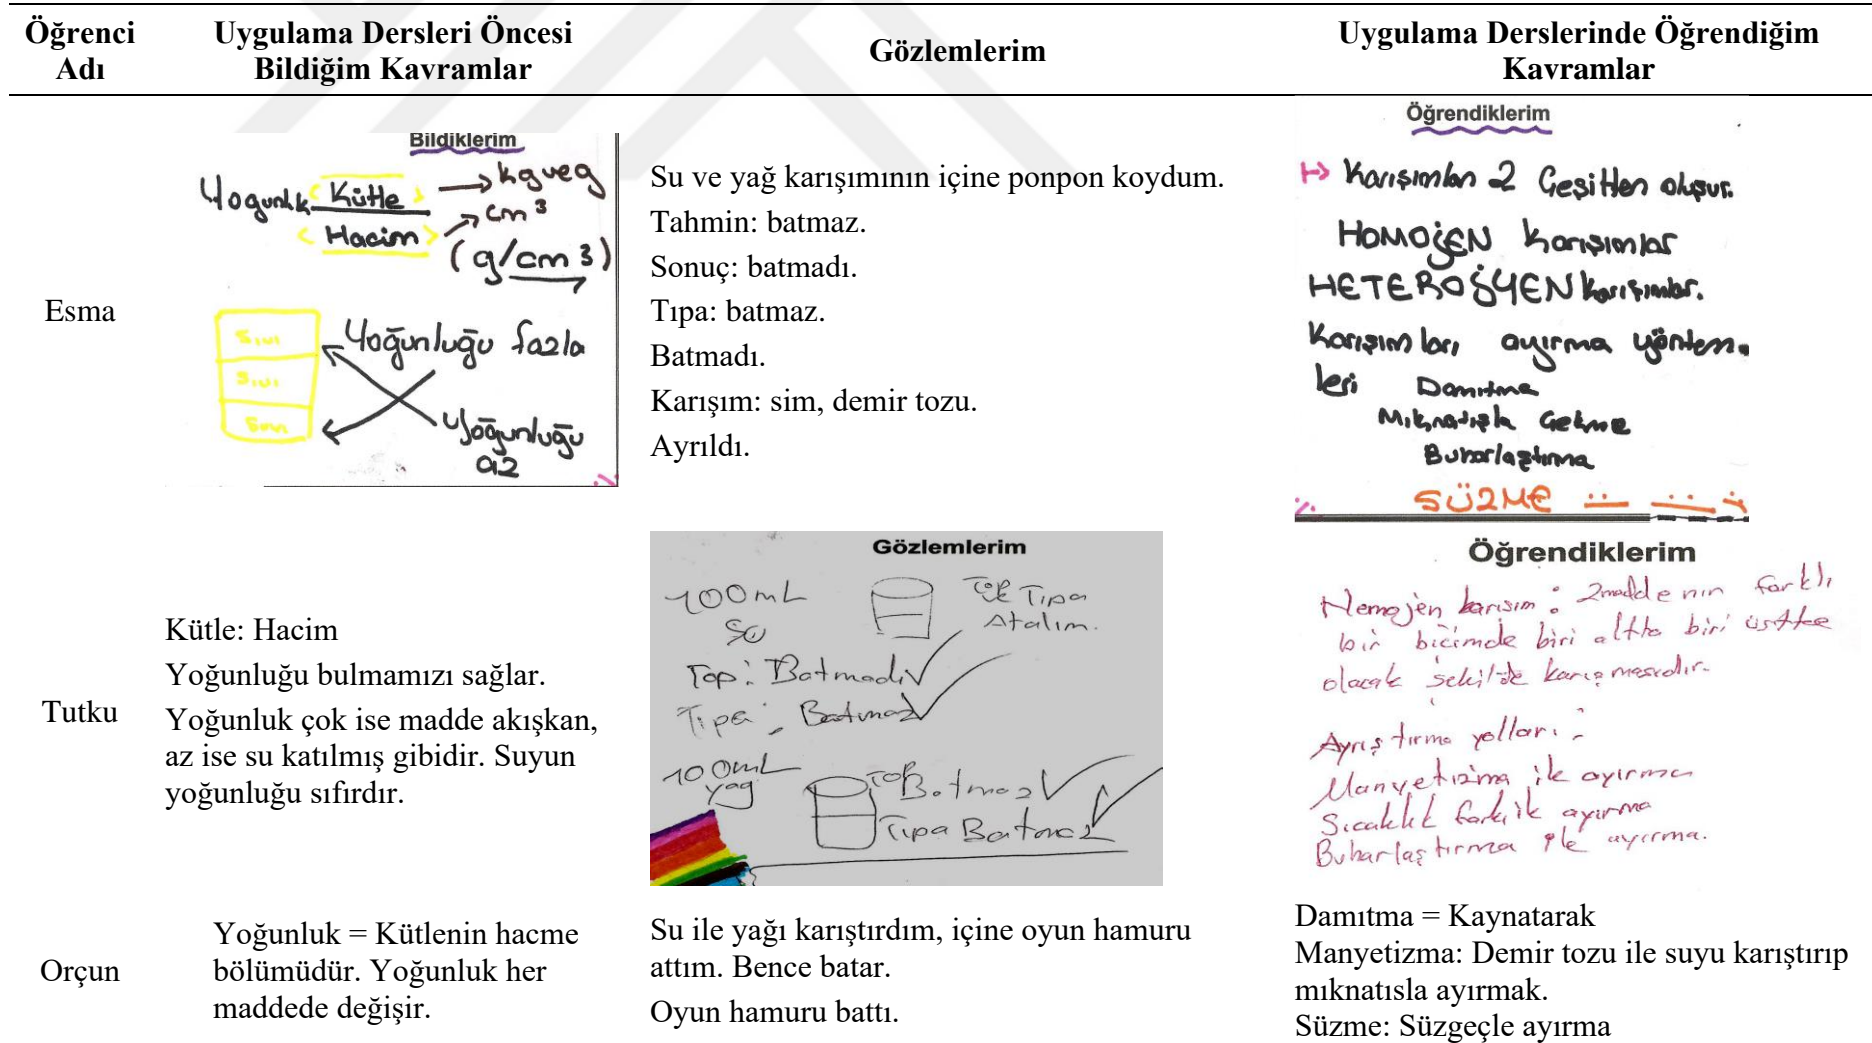 Öğrenci Adı
Uygulama Dersleri Öncesi Bildiğim Kavramlar
Gözlemlerim
Uygulama Derslerinde Öğrendiğim Kavramlar
Esma
Bildiklerim
Yogunluk Kütle → kg veg
Hacim → cm3
(g/cm3)
Sıvı
Sıvı
Sıvı
Yoğunluğu fazla
Yoğunluğu
az
Su ve yağ karışımının içine ponpon koydum.
Tahmin: batmaz.
Sonuç: batmadı.
Tıpa: batmaz.
Batmadı.
Karışım: sim, demir tozu.
Ayrıldı.
Öğrendiklerim
Karışımlar 2 Çeşitten oluşur.
HOMOJEN Karışımlar
HETEROĞYEN Karışımlar.
Karışımları ayırma yöntem-
leri Damıtma
Mıknatısla Çekme
Buharlaştırma
SÜZME
Tutku
Kütle: Hacim
Yoğunluğu bulmamızı sağlar.
Yoğunluk çok ise madde akışkan,
az ise su katılmış gibidir. Suyun
yoğunluğu sıfırdır.
Gözlemlerim
100mL
Su
Top ile Tıpa
Atalım.
Top: Batmadı
Tıpa: Batmaz
100mL
yag
Top Batmaz
Tıpa Batmaz
Öğrendiklerim
Hemojen karışım: 2 maddenin farklı
bir biçimde biri altta biri üstte
olacak şekilde karışmasıdır.
Ayrıştırma yolları:
Manyetizma ile ayırma
Sıcaklık farkı ile ayırma
Buharlaştırma ile ayırma.
Orçun
Yoğunluk = Kütlenin hacme
bölümüdür. Yoğunluk her
maddede değişir.
Su ile yağı karıştırdım, içine oyun hamuru
attım. Bence batar.
Oyun hamuru battı.
Damıtma = Kaynatarak
Manyetizma: Demir tozu ile suyu karıştırıp
mıknatısla ayırmak.
Süzme: Süzgeçle ayırma